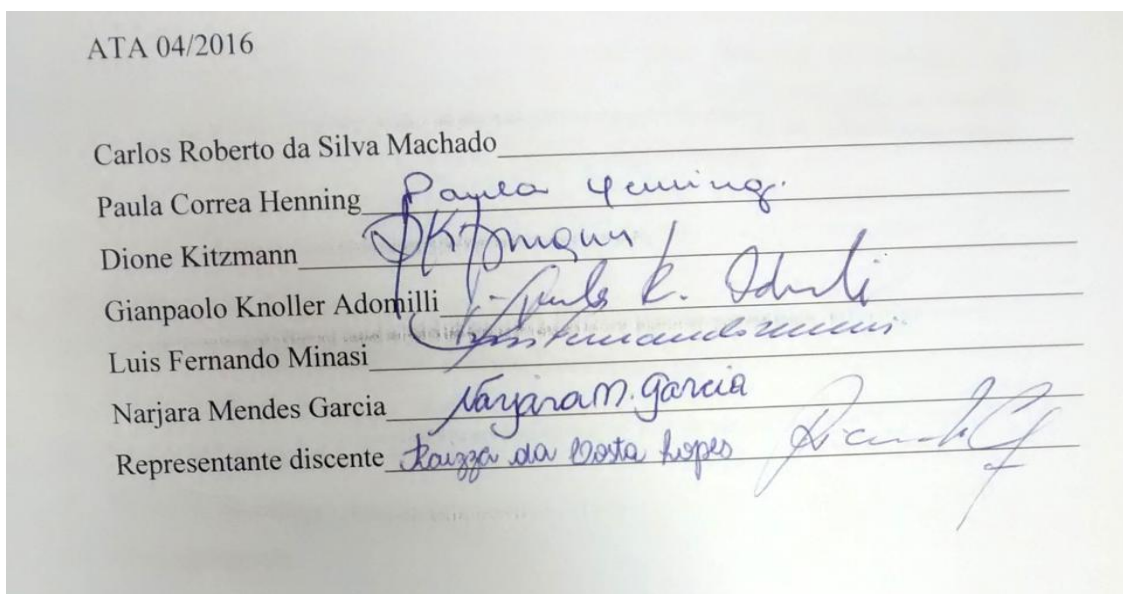 ATA 04/2016
Carlos Roberto da Silva Machado
Paula Correa Henning Paula Henning.
Dione Kitzmann DKitzmann
Gianpaolo Knoller Adomilli
Luis Fernando Minasi
Narjara Mendes Garcia Narjara M. Garcia
Representante discente Raizza da Costa Lopes